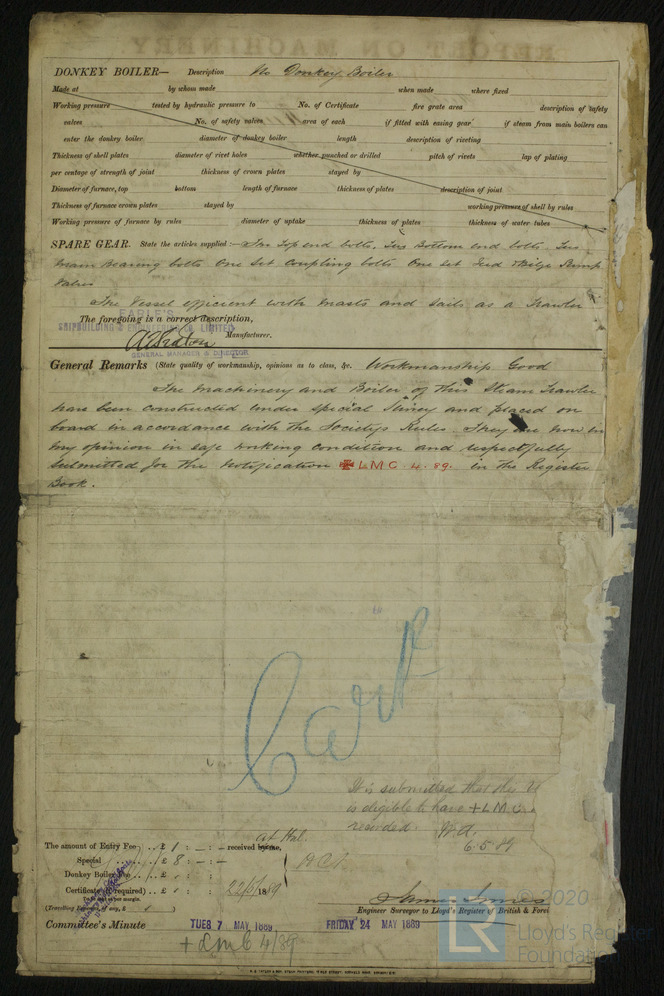 DONKEY BOILER— Description No Donkey Boiler
Made at by whom made when made where fixed
Working pressure tested by hydraulic pressure to No. of Certificate fire grate area description of safety
valves No. of safety valves area of each if fitted with easing gear if steam from main boilers can
enter the donkey boiler diameter of donkey boiler length description of riveting
Thickness of shell plates diameter of rivet holes whether punched or drilled pitch of rivets lap of plating
per centage of strength of joint thickness of crown plates stayed by
Diameter of furnace, top bottom length of furnace thickness of plates description of joint
Thickness of furnace crown plates stayed by working pressure of shell by rules
Working pressure of furnace by rules diameter of uptake thickness of plates thickness of water tubes
SPARE GEAR. State the articles supplied:— Two Top end bolts, Two Bottom end bolts, Two
main bearing bolts One set Coupling bolts One set Feed & Bilge Pump
Valves
The Vessel efficient with masts and sails as a Trawler
The foregoing is a correct description,
EARLE'S
SHIPBUILDING & ENGINEERING CO. LIMITED
Manufacturer.
GENERAL MANAGER & DIRECTOR
General Remarks (State quality of workmanship, opinions as to class, &c. Workmanship Good
The machinery and Boiler of this Steam Trawler
have been constructed under special Survey and placed on
board in accordance with the Society's Rules. They are now in
my opinion in safe working condition and respectfully
submitted for the Notification ✠ LMC 4.89. in the Register
Book.
It is submitted that this
is eligible to have + LMC
recorded.
6.5.89
The amount of Entry Fee .. £ 1 : – : – received by me,
Special .. £ 8 : – : –
Donkey Boiler Fee .. £
Certificate (if required) .. £ 22/5/1889
James Innes
Engineer Surveyor to Lloyd's Register of British & Forei
Committee's Minute
TUES 7 MAY 1889 FRIDAY 24 MAY 1889
+ LMC 4/89
© 2020
LR
Lloyd's Register
Foundation